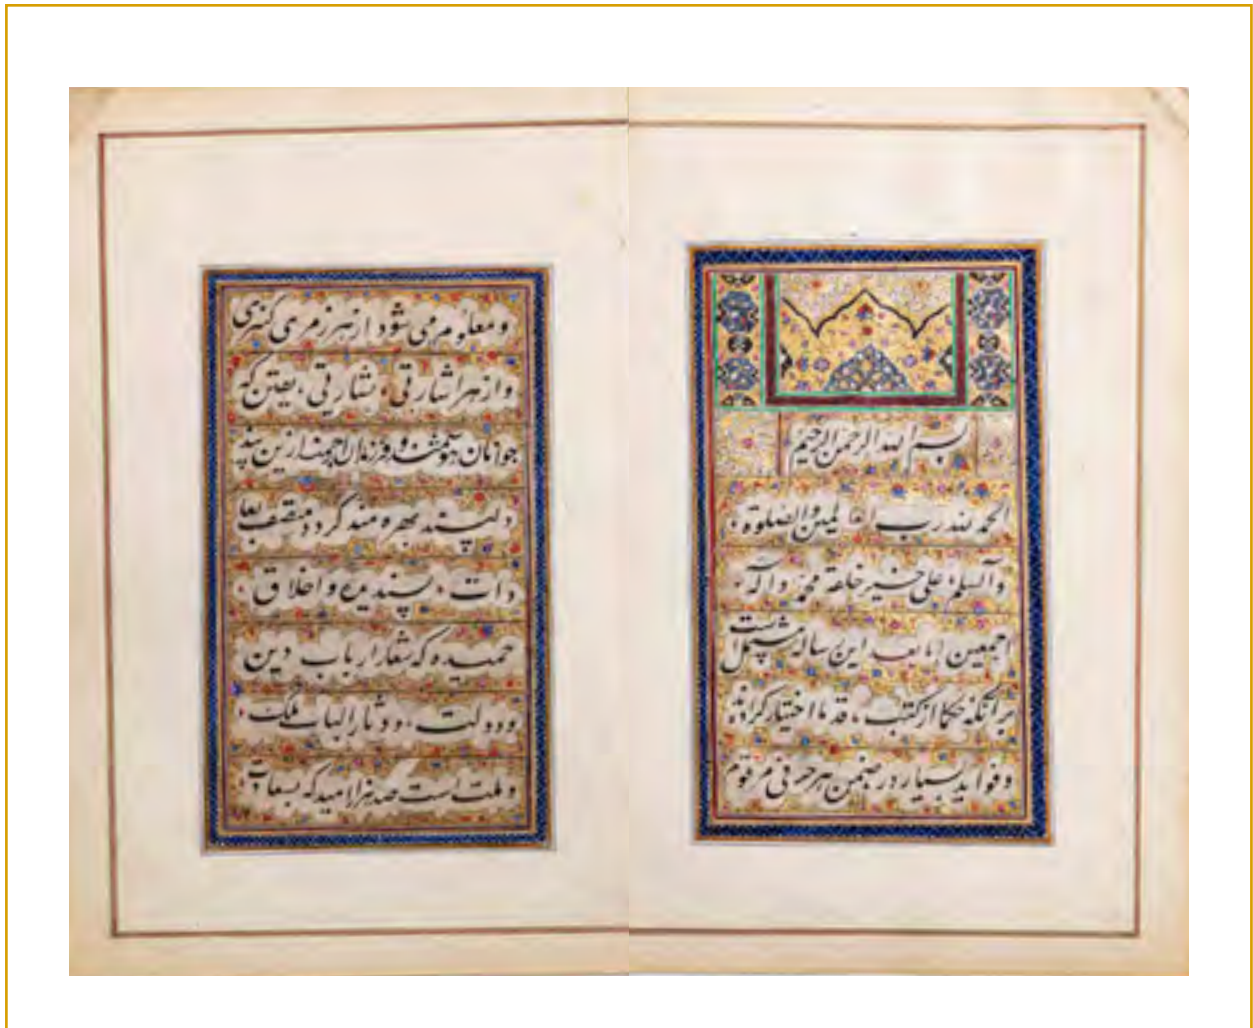 بسم الله الرحمن الرحیم
الحمد لله رب العالمین والصلوة
والسلم علی خیر خلقه محمد واله
اجمعین اما بعد این رساله مشتملست
برانکه حکما از کتب قدما اختیار کرده‌اند
و فواید بسیار در ضمن هر حرفی مرقوم
و معلوم می شود از هر رمزی کنزی
و از هر اشارتی بشارتی یقین که
جوانان هوشمند و فرزندان ارجمند ازین پند
دلپسند بهره مند گردد متصف بعا
دات پسندیده و اخلاق
حمیده که شعار ارباب دین
و دولت و دثار الباب ملک
و ملت است صد هزار امید که بسعادت